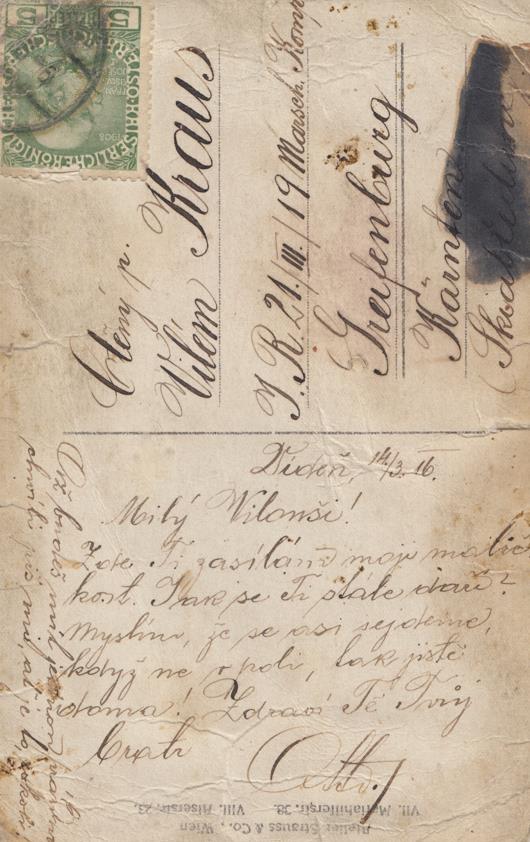 5 HELLER 5
KAISERLICHE KÖNIGLICHE ÖSTERR
1908
Ctěný p.
Vilém Kraus
I. R. 21./III./19 Marsch. Komp
Greifenburg
Kärnten
Vídeň, 14/3. 16.
Milý Vilouši!
Zde Ti zasílám moji malič
kost. Jak se Ti stále daří?
Myslím, že se asi sejdeme,
když ne v poli, tak jistě
doma! Zdraví Tě Tvůj
bratr
Otto
Až budeš mít
chvíli piš mi, ať je to
Atelier Strauss & Co., Wien
VII. Mariahilferstr. 38. VIII. Alserstr. 23.